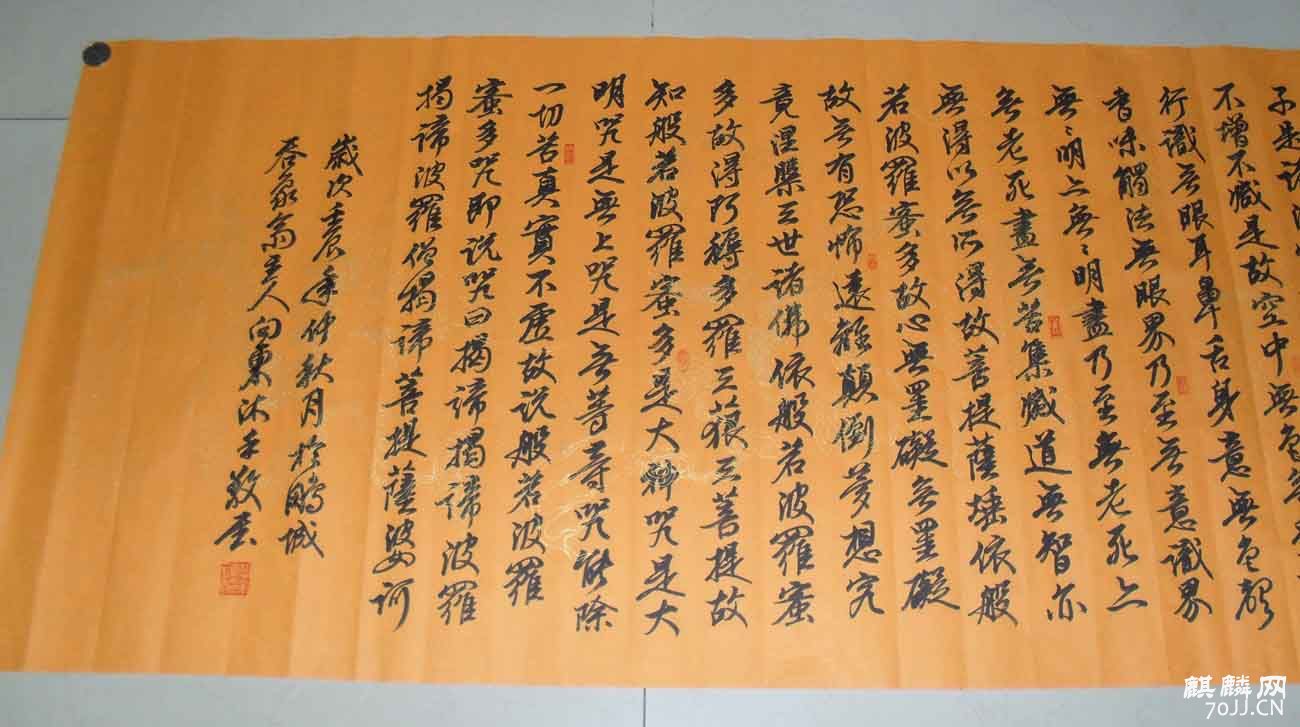 子是諸
不增不減是故空中無色無
行識无眼耳鼻舌身意無色聲
香味觸法无眼界乃至无意識界
無〻明亦無〻明盡乃至無老死亦
无老死盡无苦集滅道無智亦
無得以无所得故菩提薩埵依般
若波羅蜜多故心無罣礙无罣礙
故无有恐怖遠離顛倒夢想究
竟涅槃三世諸佛依般若波羅蜜
多故得阿耨多羅三藐三菩提故
知般若波羅蜜多是大神咒是大
明咒是無上咒是无等等咒能除
一切苦真實不虛故說般若波羅
蜜多咒即說咒曰揭諦揭諦波羅
揭諦波羅僧揭諦菩提薩婆訶
歲次壬辰年仲秋月於鵬城
翁主人向東沐手敬書
麒麟网
70JJ.CN